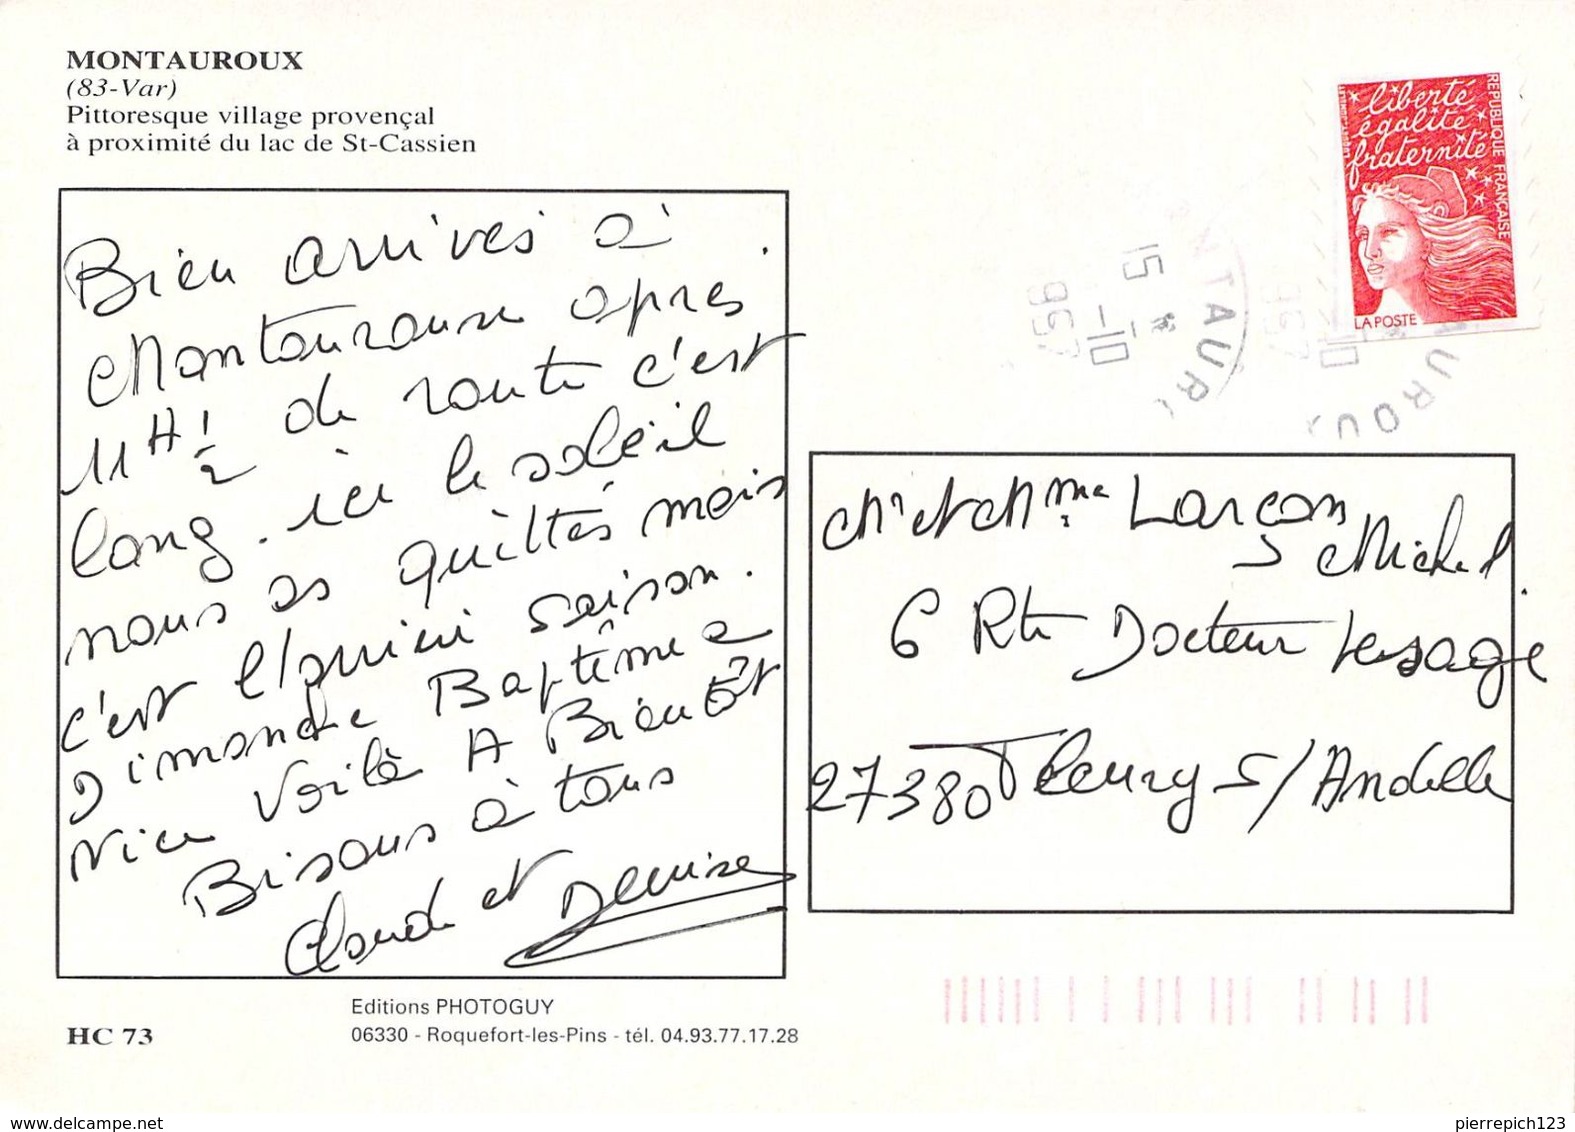 MONTAUROUX
(83-Var)
Pittoresque village provençal
à proximité du lac de St-Cassien
liberté
égalité
fraternité
REPUBLIQUE FRANÇAISE
LA POSTE
15 -10
Bien arrivés à
Montauroux après
11H 1/2 de route c'est
long. ici le soleil
nous as quittés mais
c'est l'arrière saison.
Dimanche Baptême a
Nice Voilà A Bientôt
Bisous à tous
Claude et Denise
Mr et Mme Larçon
Michel
6 Rte Docteur Lesage
27380 Fleury S/Andelle
Editions PHOTOGUY
06330 - Roquefort-les-Pins - tél. 04.93.77.17.28
HC 73
pierrepich123